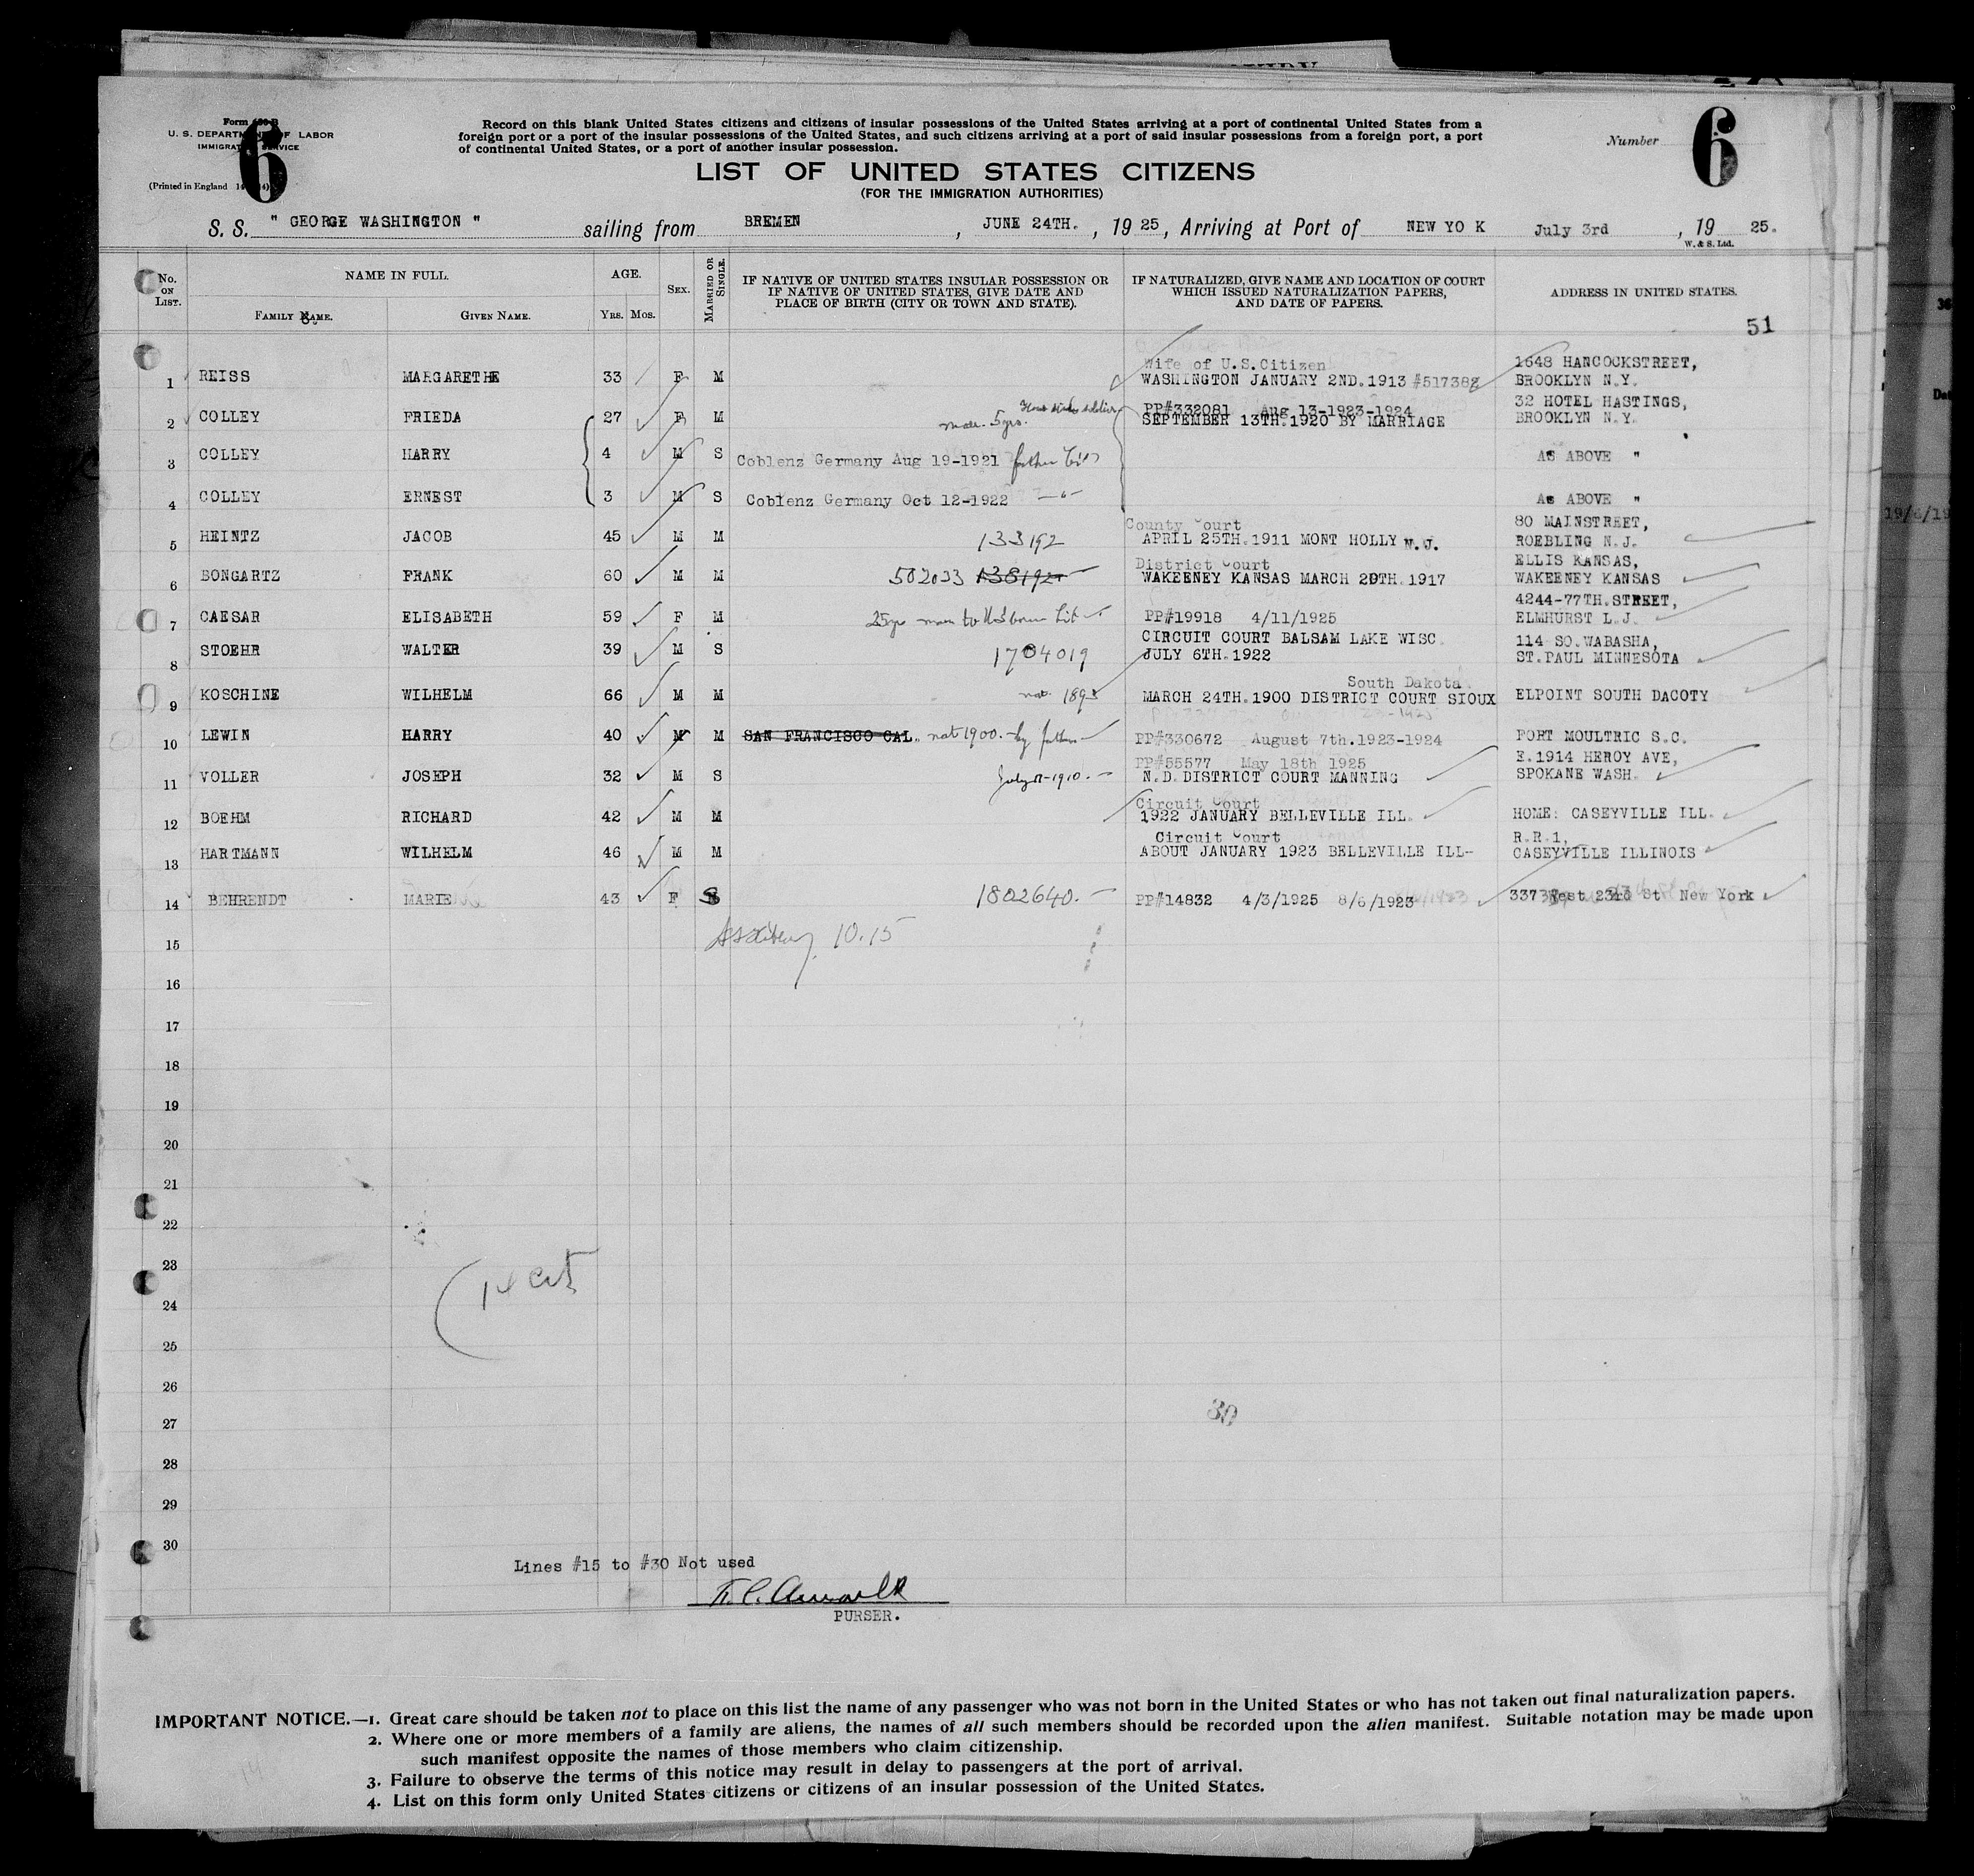 Form 630 B
U. S. DEPARTMENT OF LABOR
IMMIGRATION SERVICE
(Printed in England
6
Record on this blank United States citizens and citizens of insular possessions of the United States arriving at a port of continental United States from a
foreign port or a port of the insular possessions of the United States, and such citizens arriving at a port of said insular possessions from a foreign port, a port
of continental United States, or a port of another insular possession.
LIST OF UNITED STATES CITIZENS
(FOR THE IMMIGRATION AUTHORITIES)
Number 6
S. S. " GEORGE WASHINGTON " sailing from BREMEN , JUNE 24TH. , 19 25 , Arriving at Port of NEW YO K July 3rd , 19 25.
W. & S. Ltd.
No. ON LIST. NAME IN FULL. FAMILY NAME. GIVEN NAME. AGE. YRS. MOS. SEX. MARRIED OR SINGLE.
IF NATIVE OF UNITED STATES INSULAR POSSESSION OR IF NATIVE OF UNITED STATES, GIVE DATE AND PLACE OF BIRTH (CITY OR TOWN AND STATE).
IF NATURALIZED, GIVE NAME AND LOCATION OF COURT WHICH ISSUED NATURALIZATION PAPERS, AND DATE OF PAPERS.
ADDRESS IN UNITED STATES.
51
Wife of U.S.Citizen 1648 HANCOCKSTREET,
1 REISS MARGARETHE 33 F M WASHINGTON JANUARY 2ND.1913 #517388 BROOKLYN N.Y.
PP#332081 Aug 13-1923-1924 32 HOTEL HASTINGS,
2 COLLEY FRIEDA 27 F M 5 yrs. SEPTEMBER 13TH.1920 BY MARRIAGE BROOKLYN N.Y.
3 COLLEY HARRY 4 M S Coblenz Germany Aug 19-1921 father AS ABOVE "
4 COLLEY ERNEST 3 M S Coblenz Germany Oct 12-1922 -"- As ABOVE "
County Court 80 MAINSTREET,
5 HEINTZ JACOB 45 M M 133192 APRIL 25TH.1911 MONT HOLLY N.J. ROEBLING N.J.
District Court ELLIS KANSAS,
6 BONGARTZ FRANK 60 M M 502033 WAKEENEY KANSAS MARCH 29TH.1917 WAKEENEY KANSAS
4244-77TH.STREET,
7 CAESAR ELISABETH 59 F M 25 yrs to PP#19918 4/11/1925 ELMHURST L.J.
CIRCUIT COURT BALSAM LAKE WISC 114 SO.WABASHA,
8 STOEHR WALTER 39 M S 1704019 JULY 6TH.1922 ST.PAUL MINNESOTA
South Dakota
9 KOSCHINE WILHELM 66 M M nat. MARCH 24TH.1900 DISTRICT COURT SIOUX ELPOINT SOUTH DACOTY
10 LEWIN HARRY 40 M M SAN FRANCISCO CAL. nat 1900. by father PP#330672 August 7th.1923-1924 FORT MOULTRIC S.C.
PP#55577 May 18th 1925 E.1914 HEROY AVE,
11 VOLLER JOSEPH 32 M S 1910. N.D.DISTRICT COURT MANNING SPOKANE WASH.
Circuit Court
12 BOEHM RICHARD 42 M M 1922 JANUARY BELLEVILLE ILL. HOME: CASEYVILLE ILL.
Circuit Court R.R.1,
13 HARTMANN WILHELM 46 M M ABOUT JANUARY 1923 BELLEVILLE ILL- CASEYVILLE ILLINOIS
14 BEHRENDT MARIE 43 F S 1802640. PP#14832 4/3/1925 8/6/1923 337 West 23rd St New York
15 10.15
16
17
18
19
20
21
22
23
24
25
26
27
28
29
30
30
Lines #15 to #30 Not used
PURSER.
IMPORTANT NOTICE.—1. Great care should be taken not to place on this list the name of any passenger who was not born in the United States or who has not taken out final naturalization papers.
2. Where one or more members of a family are aliens, the names of all such members should be recorded upon the alien manifest. Suitable notation may be made upon
such manifest opposite the names of those members who claim citizenship.
3. Failure to observe the terms of this notice may result in delay to passengers at the port of arrival.
4. List on this form only United States citizens or citizens of an insular possession of the United States.